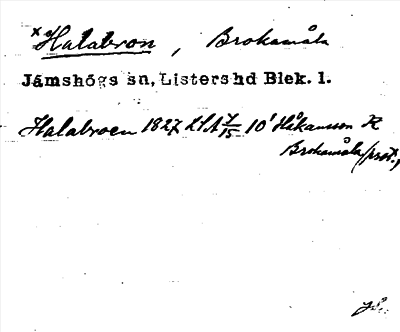 x Halabron, Brokamåla
Jämshögs sn, Listers hd Blek. l.
Halabroen 1827 LSA 7/15 10' Håkansson K
Brokamåla (prot.)